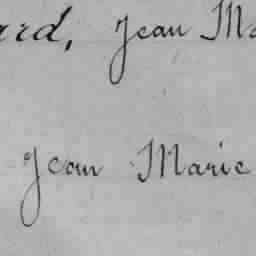 ard, Jean Ma
Jean Marie